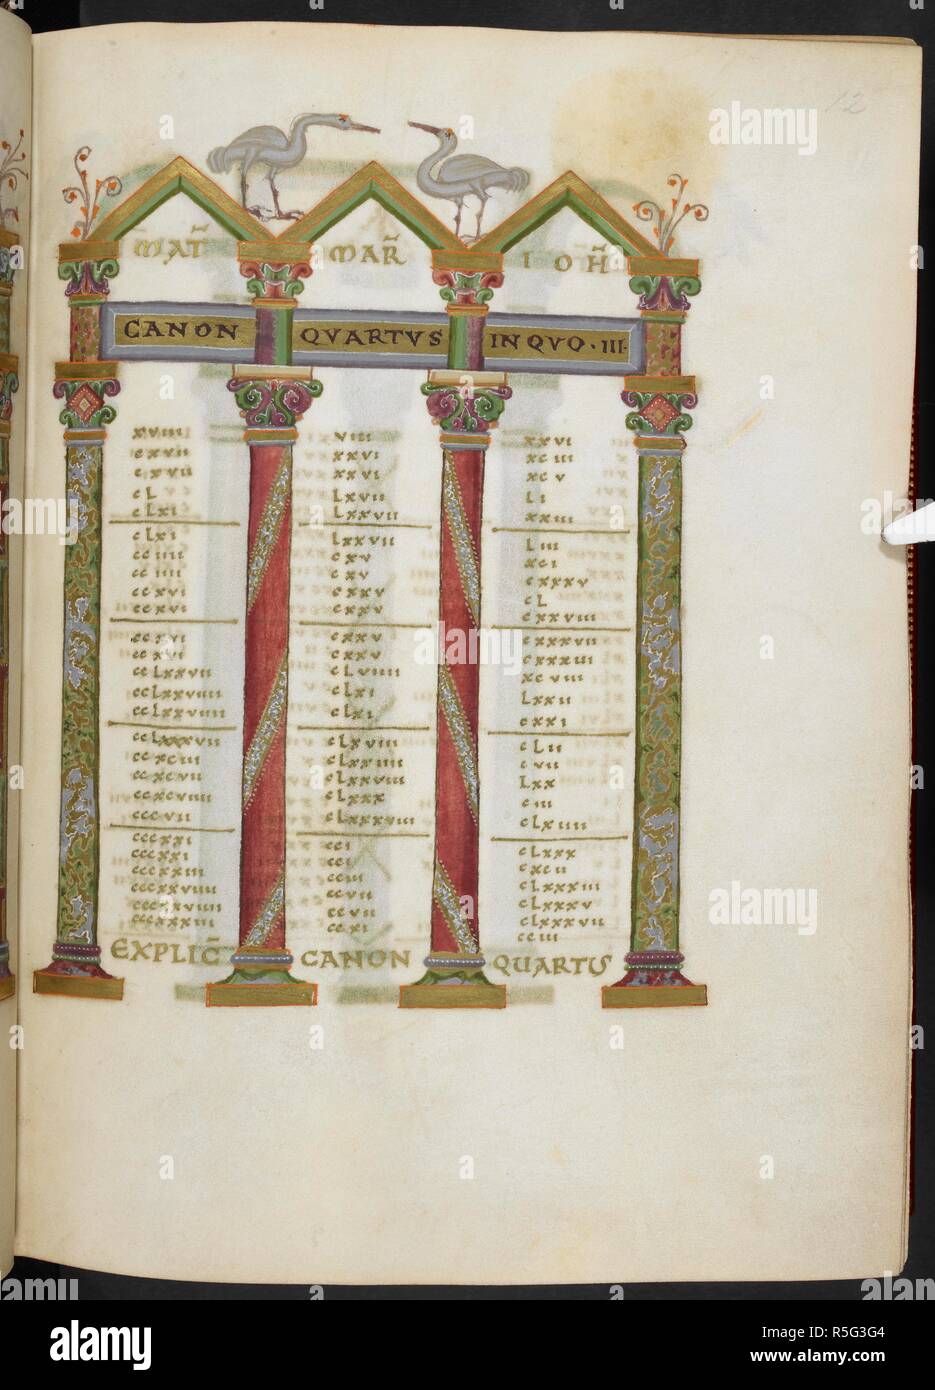 12
MAT̃ MAR̃ IOH̃
CANON QVARTVS IN QVO · III ·
xviiii viii xxvi
cxvii xxvi xciii
cxvii xxvi xcv
cL Lxvii Li
cLxi Lxxvii xxiii
cLxi Lxxvii Liii
cciiii cxv xci
cciiii cxv cxxxv
ccxvi cxxv cL
ccxvi cxxv cxxviii
ccxvi cxxv cxxxvii
ccxvi cxxv cxxxiii
ccLxxvii cLviiii xcviii
ccLxxviiii cLxi Lxxii
ccLxxviiii cLxi cxxi
ccLxxxvii cLxviii cLii
ccxciii cLxxiiii cvii
ccxcvii cLxxviii Lxx
ccxcviiii cLxxx ciii
cccvii cLxxxviii cLxiiii
cccxxi cci cLxxx
cccxxi cci cxcii
cccxxiii cciii cLxxxiii
cccxxviiii ccvii cLxxxv
cccxxviiii ccvii cLxxxvii
cccxxxiii ccxi cciii
EXPLIC̃ CANON QUARTUS
alamy
alamy
Image ID: R5G3G4
www.alamy.com